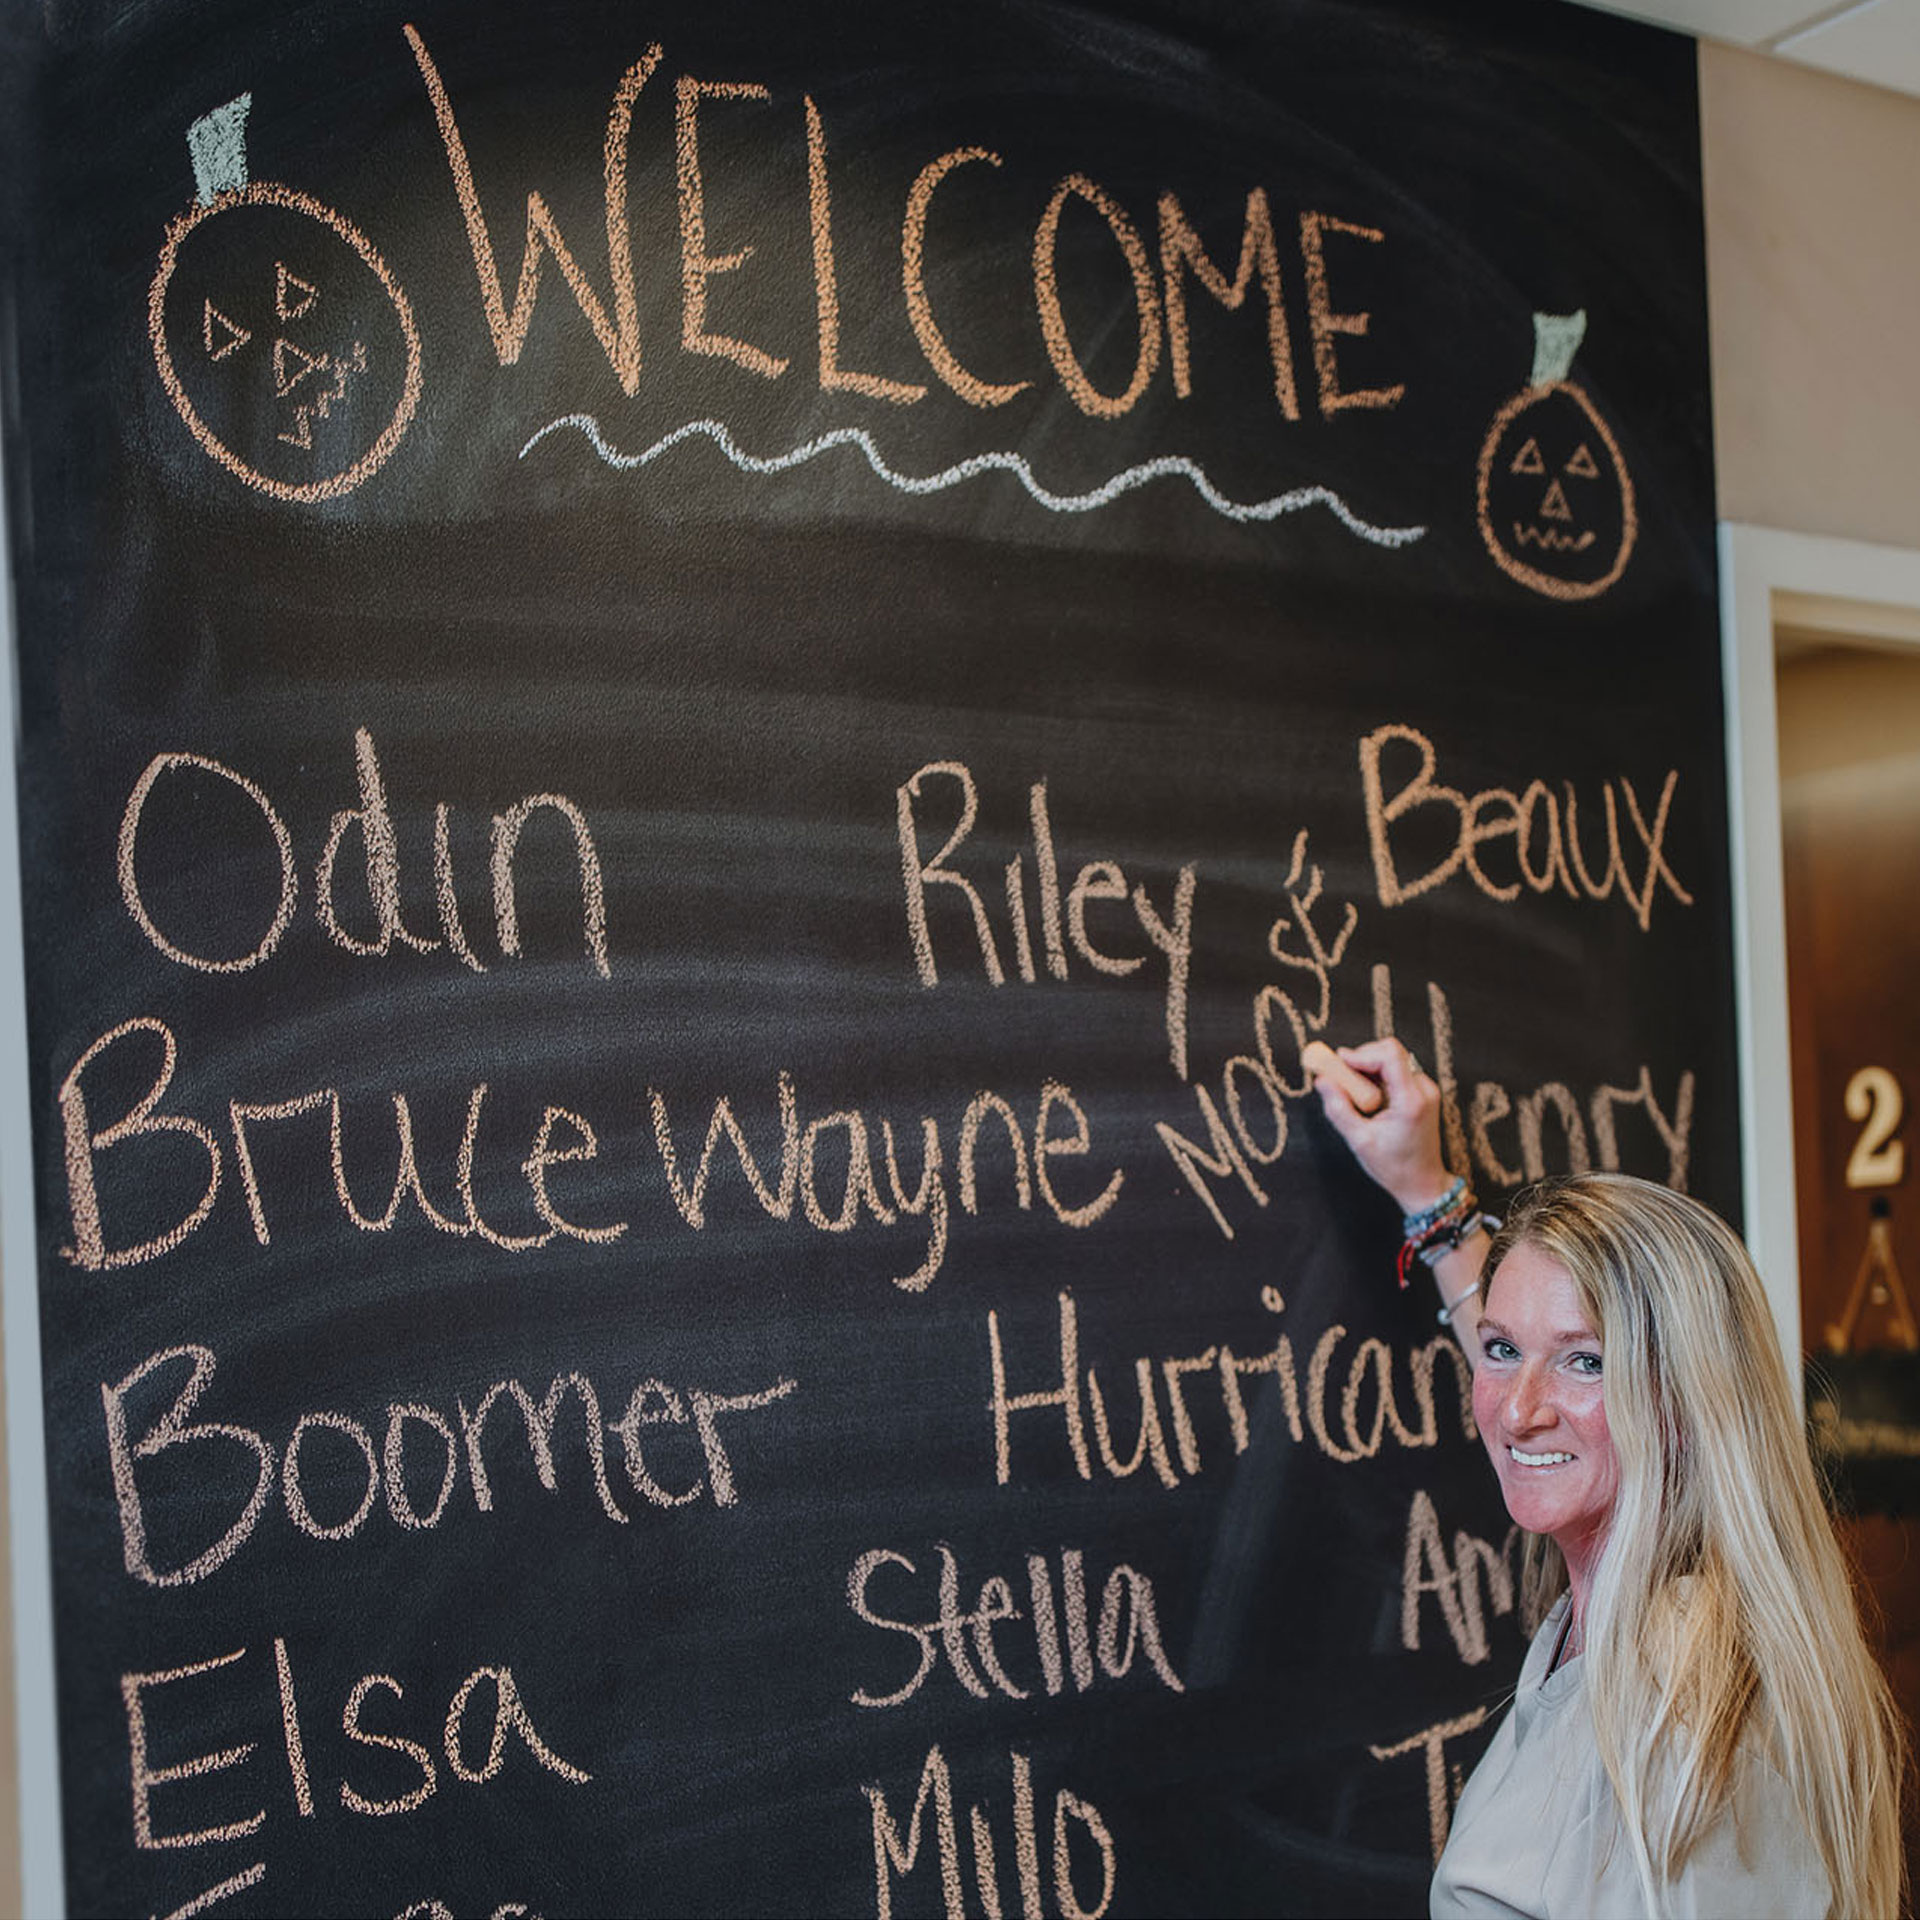 WELCOME
Odin Riley Beaux
Bruce Wayne MOOSE Henry
Boomer Hurrican
Elsa Stella
Milo
2